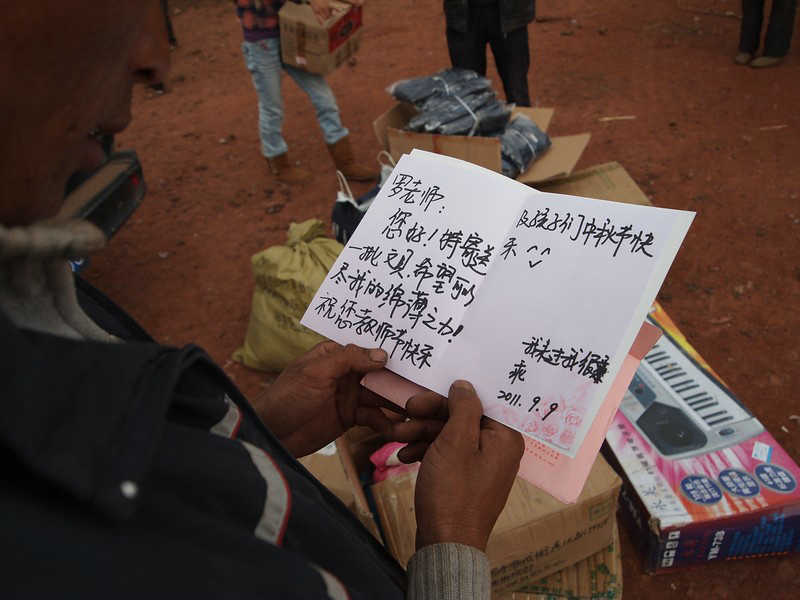 罗老师:
您好！特寄送
一批文具,希望可以
尽我的绵薄之力!
祝您教师节快乐
及孩子们中秋节快
乐 ^^
我来过我很
乖
2011.9.9
YM-738